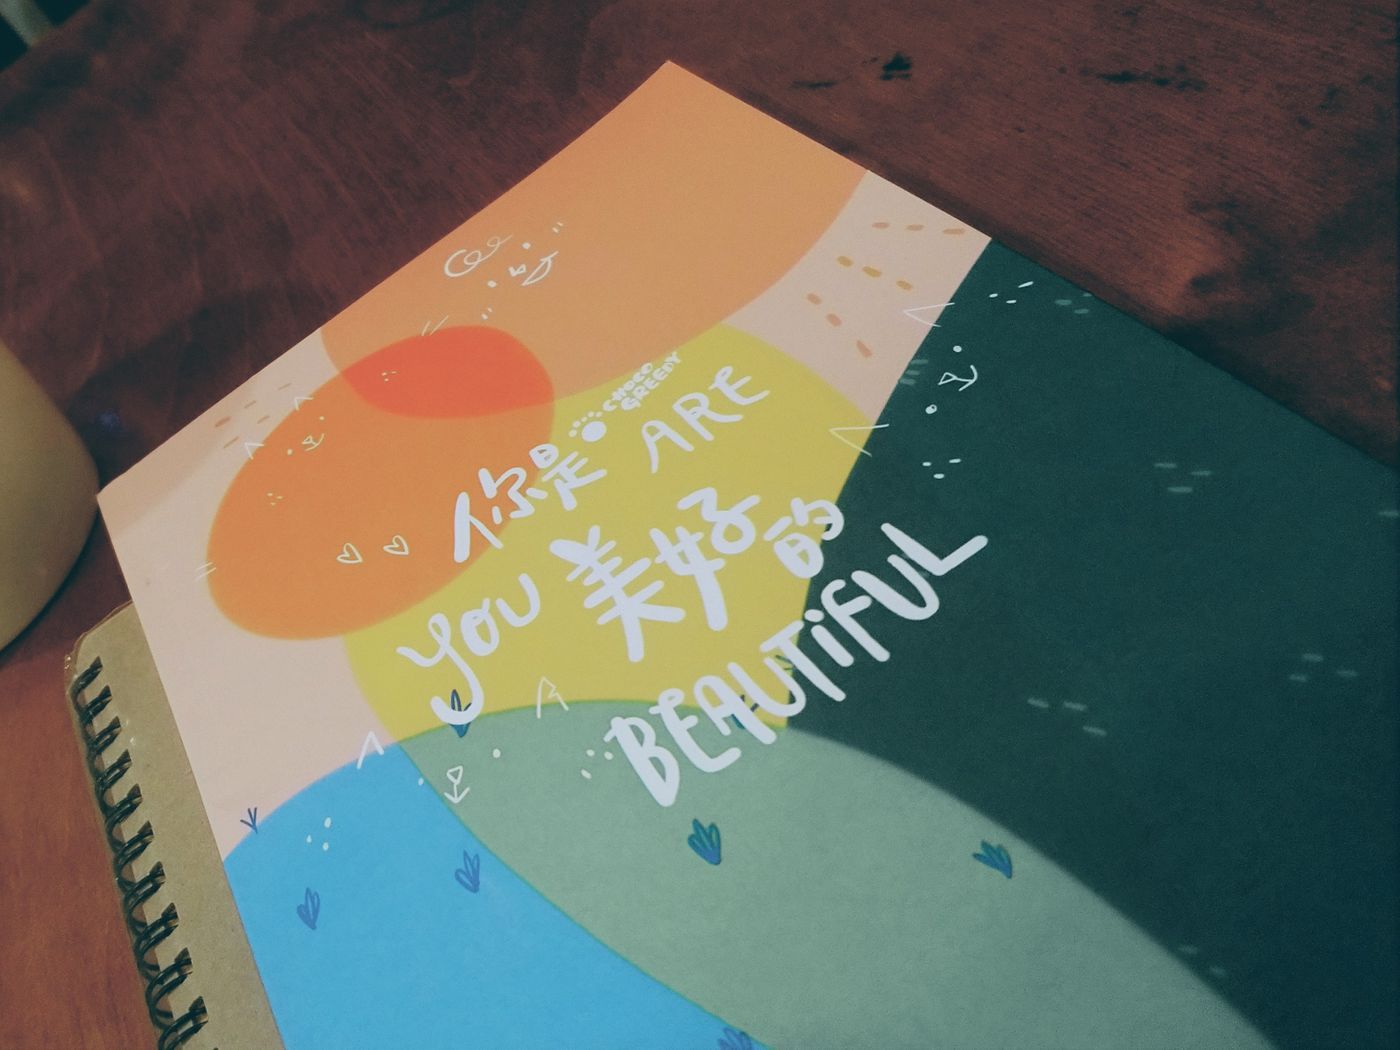 CHOCO
GREEDY
你是 ARE
You 美好的
BEAUTiFUL